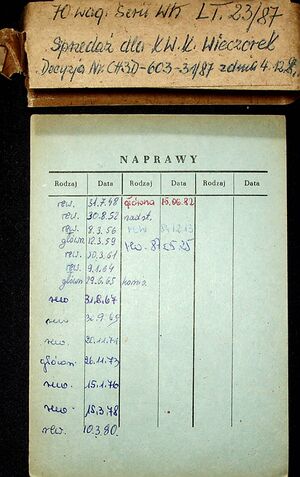 70 wag. Serii Wk LT. 23/87
Sprzedaż dla KW.K. Wieczorek
Decyzja Nr CH3D-603-31/87 z dnia 4.12.
NAPRAWY
Rodzaj Data Rodzaj Data Rodzaj Data
rew. 31.7.48 główna 15.06.82
rew. 30.8.52 nadst.
rew. 8.3.56 rew
główn 12.3.59 rew.
rew. 20.3.61
rew. 9.1.64
główn 29.6.65 komis.
rew 31.8.67
rew
rew 20.11.71
główn. 26.11.73
rew. 15.1.76
rew. 15.3.78
rew. 10.3.80.